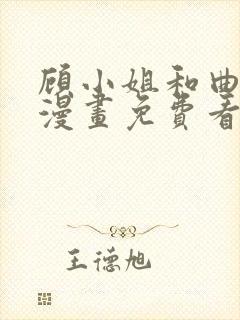 顾小姐和曲
漫畫免費看
王德旭